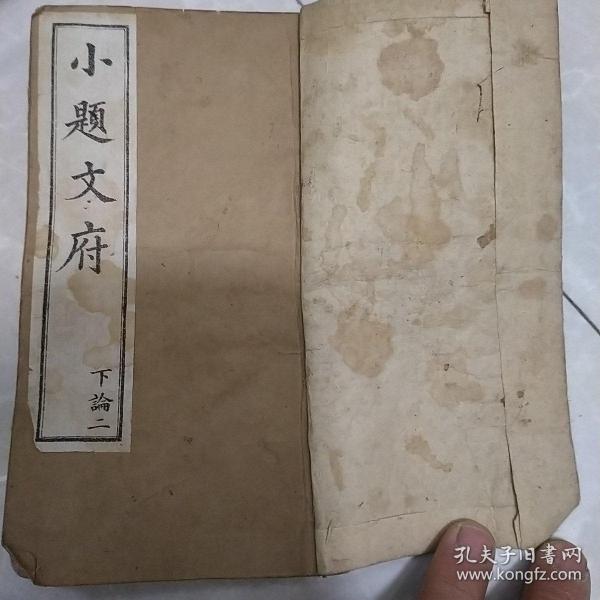 小題文府
下論二
孔夫子旧书网
www.kongfz.com